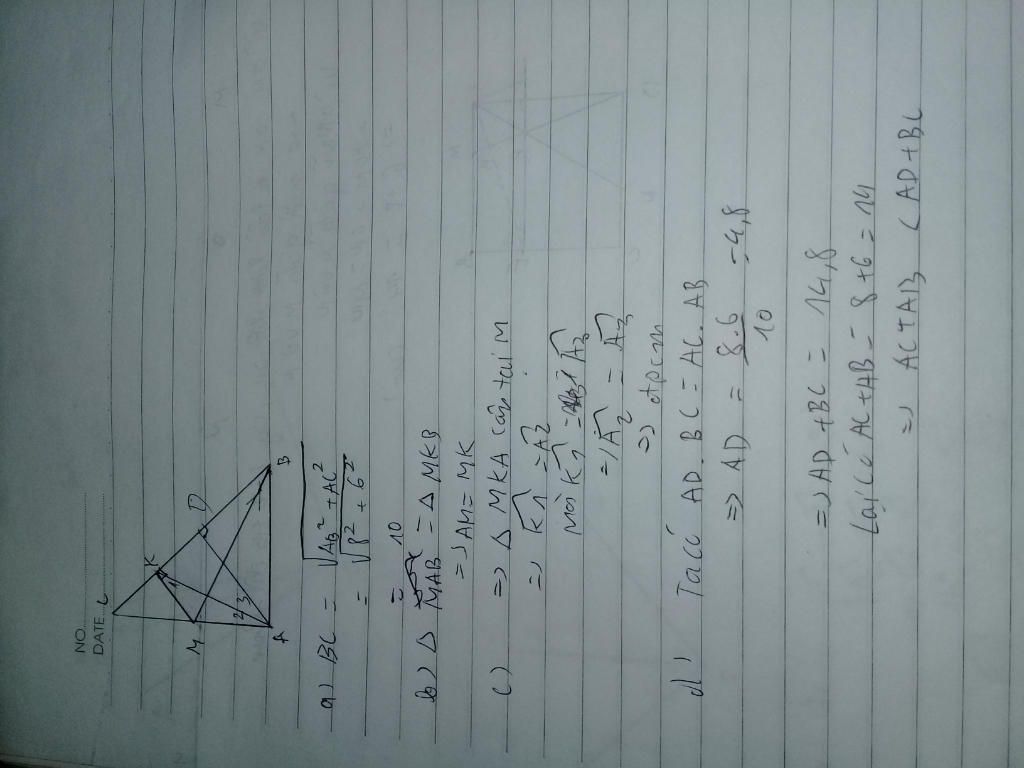 NO.
DATE
C
K
D
M
1
2
3
A
B
a) BC = √AB² + AC²
= √8² + 6²
= 10
b) Δ MAB = Δ MKB
=> AM = MK
c) => Δ MKA cân tại M
=> K1 = A2
Mà K1 = A3
=> A2 = A3
=> đpcm
d) Ta có AD. BC = AC. AB
=> AD = 8.6 / 10 = 4,8
=> AD + BC = 14,8
Lại có AC + AB = 8 + 6 = 14
=> AC + AB < AD + BC